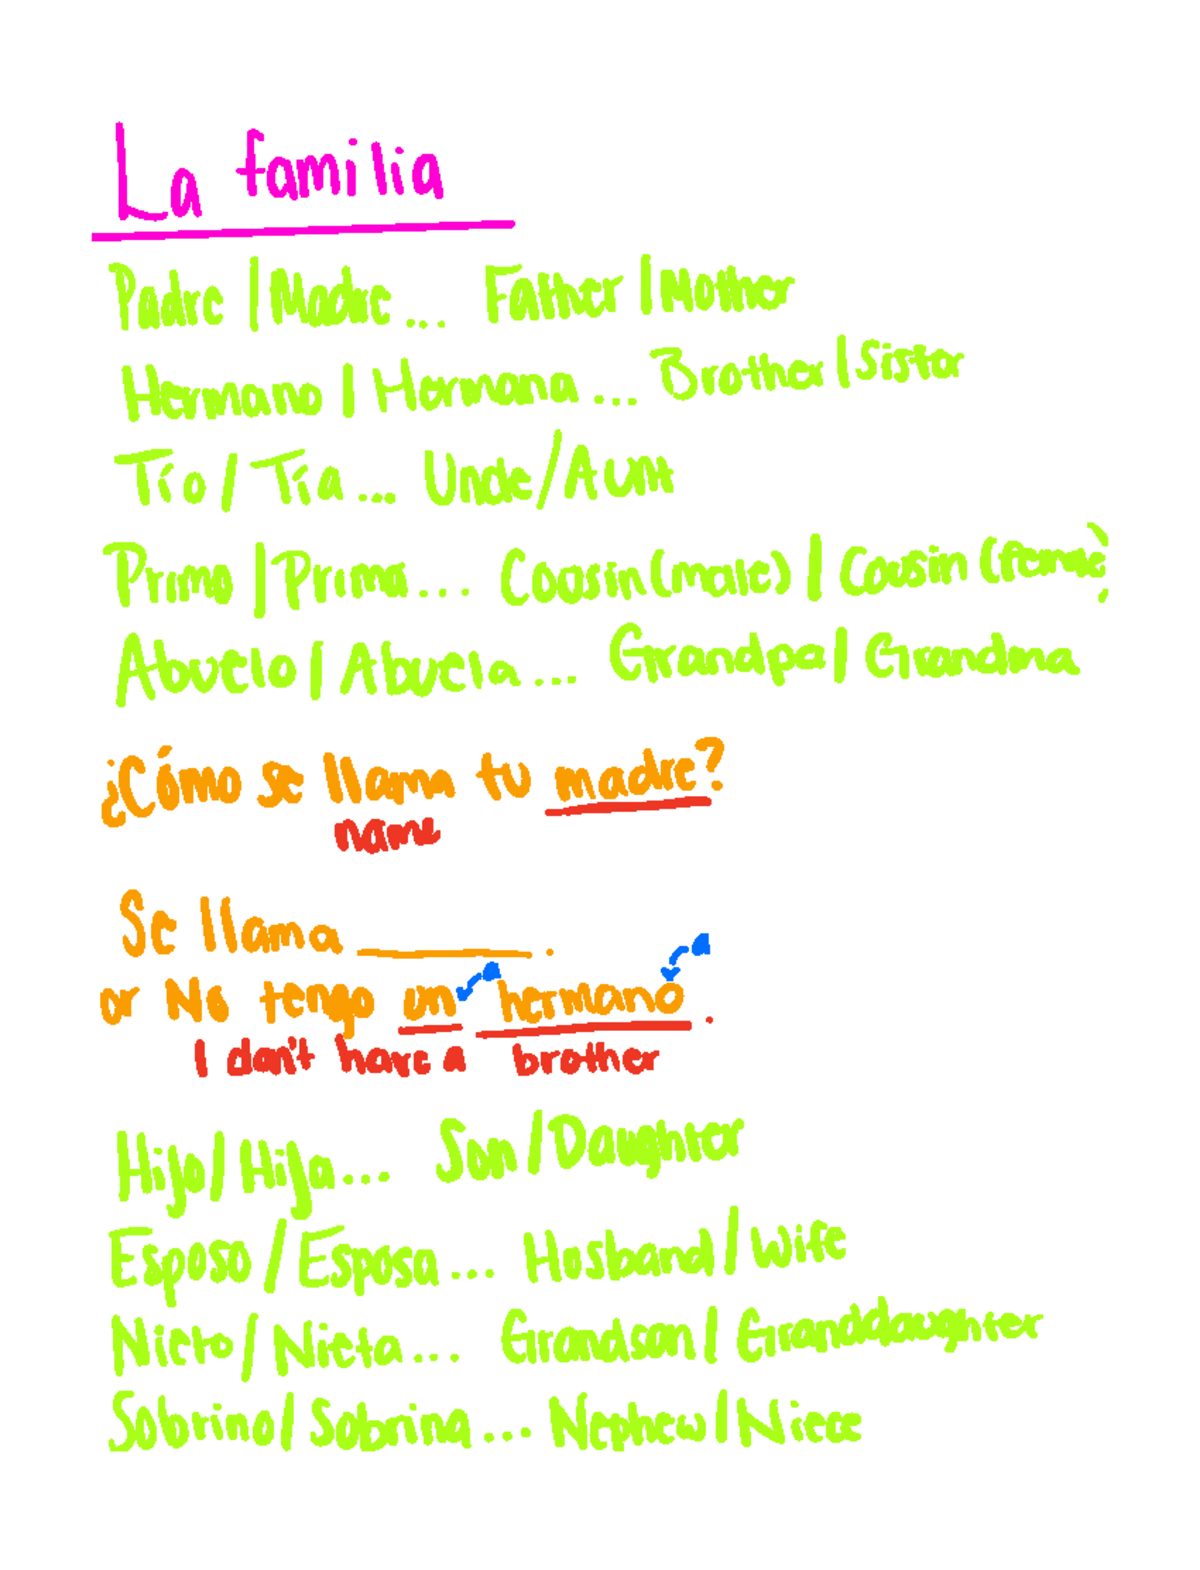 La familia
Padre | Madre... Father | Mother
Hermano | Hermana... Brother | Sister
Tío / Tía... Uncle / Aunt
Primo | Prima... Cousin (male) | Cousin (female)
Abuelo | Abuela... Grandpa | Grandma
¿Cómo se llama tu madre?
name
Se llama ______.
a a
or No tengo un hermano.
I don't have a brother
Hijo / Hija... Son / Daughter
Esposo / Esposa... Husband / Wife
Nieto / Nieta... Grandson / Granddaughter
Sobrino / Sobrina... Nephew | Niece